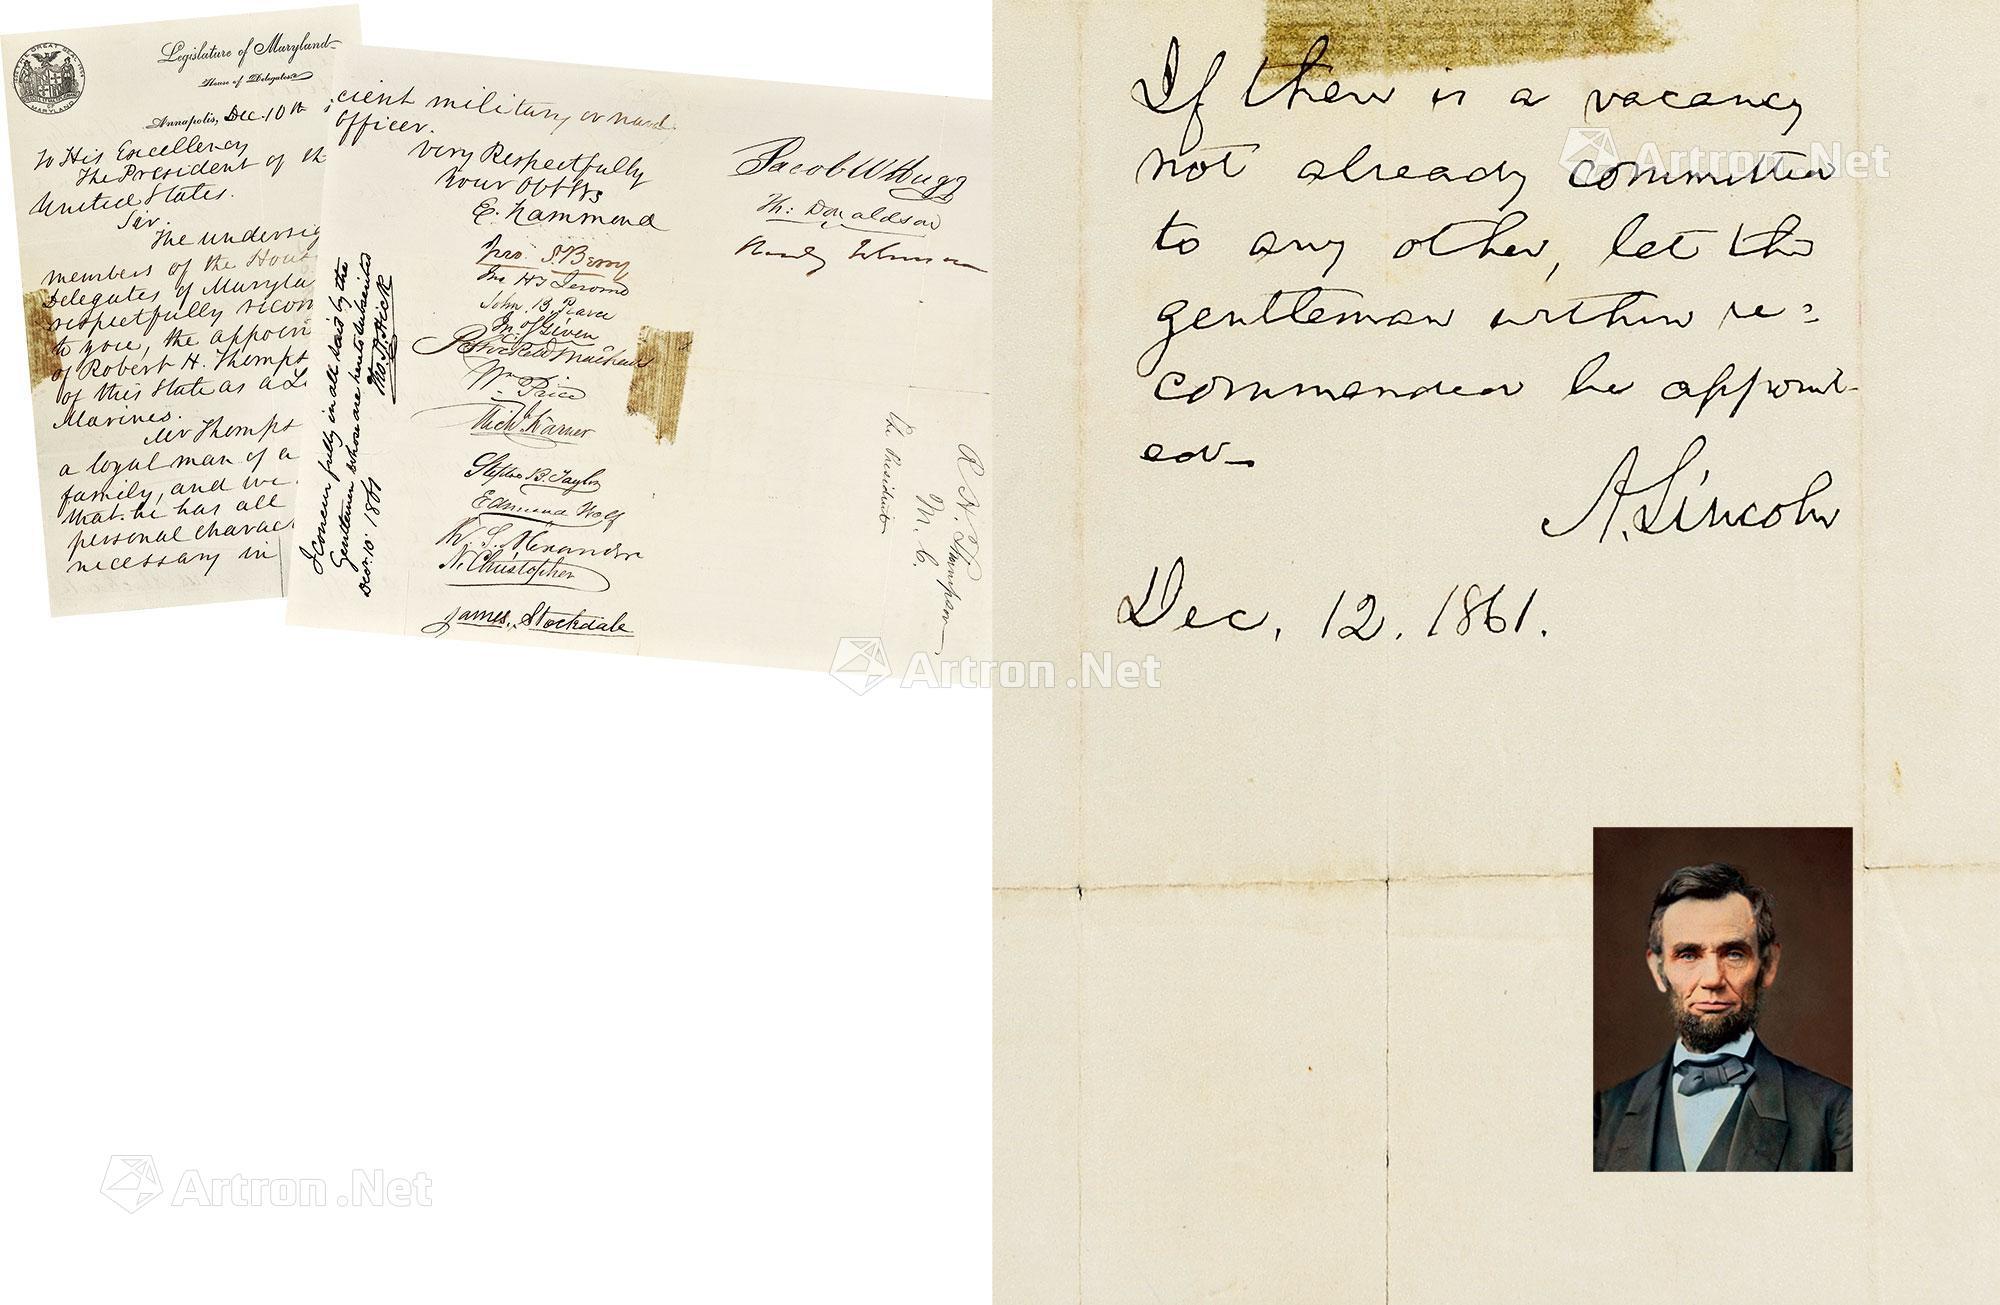 Legislature of Maryland
House of Delegates
Annapolis, Dec. 10th
To His Excellency
The President of th
United States.
Sir.
The undersig
members of the Hous
Delegates of Maryla
respectfully recom
to you, the appoin
of Robert H. Thomps
of this State as a Li
Marines.
Mr Thomps
a loyal man of a
family, and we
that he has all
personal charac
necessary in
cient military or naval
officer.
Very Respectfully
Your Obt
E. Hammond
Jno. S. Berry
H Jerome
John B.
Wm Price
Stephen B. Taylor
Edmund Wolf
W. S. Alexander
N. Christopher
James. Stockdale
Jacob W Hugg
Th: Donaldson
I concur fully in all said by the
Gentlemen whose are hereto subscribed
Dec. 10. 1861
Tho. H. Hick
The President
R H. Thompson
M. C.
If there is a vacancy
not already committed
to any other, let the
gentleman within re=
commended be appoint-
ed.
A. Lincoln
Dec. 12. 1861.
Artron.Net
Artron.Net
Artron.Net